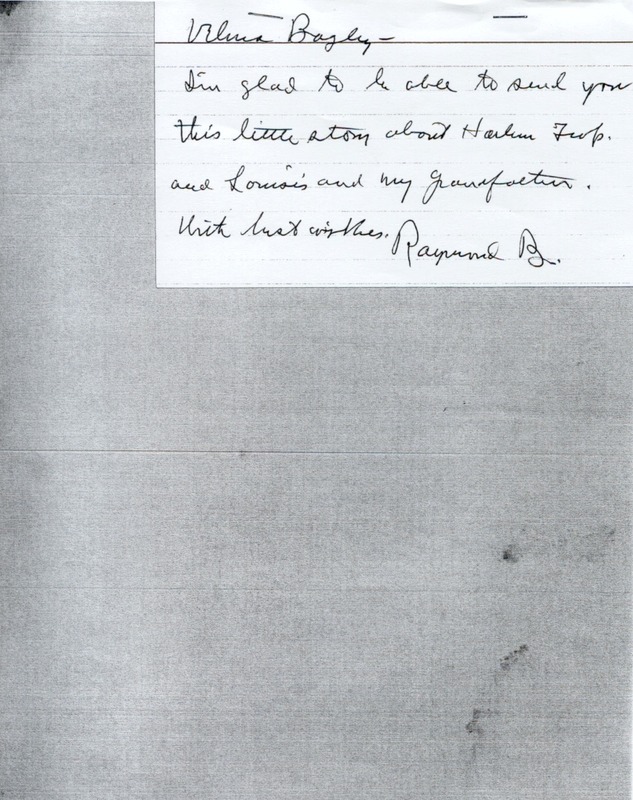 Velma Bagley -
I'm glad to be able to send you
this little story about Harlem Twp.
and Louise's and my Grandfather.
With best wishes. Raymond B.